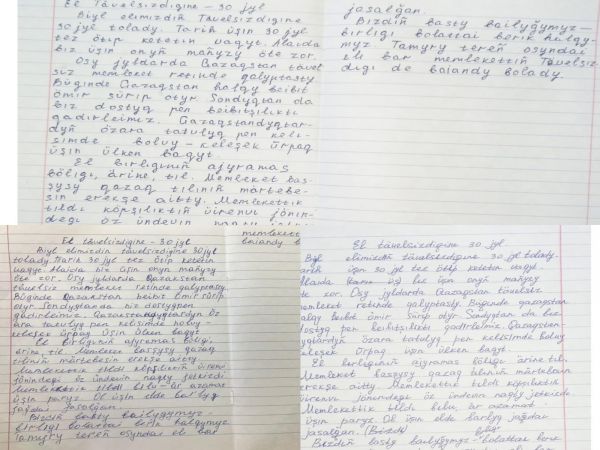 El Täuelsizdigine - 30 jyl
Biyl elimizdiñ Täuelsizdigine
30 jyl tolady. Tarih üşin 30 jyl
tez ötip ketetin uaqyt. Alaida
biz üşin onyñ mañyzy öte zor.
Osy jyldarda Qazaqstan täuel
siz memleket retinde qalyptasty
Büginde Qazaqstan halqy beibit
ömir sürip otyr. Sondyqtan da
biz dostyq pen beibitşilikti
qadirleimiz. Qazaqstandyqtar-
dyñ özara tatulyq pen keli-
simde boluy - keleşek ürpaq
üşin ülken baqyt.
El birliginiñ ajyramas
böligi, ärine, til. Memleket bas-
şysy qazaq tiliniñ märtebe-
sin erekşe aitty. Memlekettik
tildi köpşiliktiñ üirenui jönin-
degi öz ündeuin
jasalğan.
Bizdiñ basty bailyğymyz-
birligi bolattai berik halqy-
myz. Tamyry tereñ osyndai
eli bar memlekettiñ Täuelsiz-
digi de baiandy bolady.
El täuelsizdigine - 30 jyl
Biyl elimizdiñ täuelsizdigine 30 jyl
tolady. Tarih 30 jyl tez ötip ketetin
uaqyt. Alaida biz üşin onyñ mañyzy
öte zor. Osy jyldarda Qazaqstan
täuelsiz memleket retinde qalyptasty.
Büginde Qazaqstan beibit ömir sürip
otyr. Sondyqtan da biz dostyq pen
qadirleimiz. Qazaqstandyqtardyñ öz
ara tatulyq pen kelisimde boluy -
keleşek ürpaq üşin ülken baqyt.
El birliginiñ ajyramas böligi,
ärine, til. Memleket basşysy qazaq
tiliniñ märtebesin erekşe aitty.
Memlekettik tildi köpşiliktiñ üirenui
jönindegi öz ündeuin naqty jetkizdi.
Memlekettik tildi bilu - är azamat
üşin paryz. Ol üşin elde barlyq
jağdai jasalğan.
Bizdiñ basty bailyğymyz -
birligi bolattai berik halqymyz
Tamyry tereñ osyndai eli bar
memlekett
baiandy b
El täuelsizdigine 30 jyl
Biyl elimizdiñ täuelsizdigine 30 jyl tolady.
arih üşin 30 jyl tez ötip ketetin uaqyt
Alaida biz üşin onyñ mañyzy
te zor. Osy jyldarda Qazaqstan täuelsiz
memleket retinde qalyptasty. Büginde qazaqstan
alqy beibit ömir sürip otyr. Sondyqtan da biz
dostyq pen beibitşilikti qadirleimiz. Qazaqstan
yqtardyñ özara tatulyq pen kelisimde boluy
keleşek ürpaq üşin ülken baqyt.
El birliginiñ ajyramas böligi ärine til.
Memleket basşysy, qazaq tiliniñ märtebesin
erekşe aitty. Memlekettik tildi köpşiliktiñ
üirenui jönindegi öz ündeuin naqty jetkizdi
Memlekettik tildi bilu, är azamat
üşin paryz. Ol üşin elde barlyq jağdai
jasalğan.
Bizdiñ basty bailyğymyz - bolattai berik